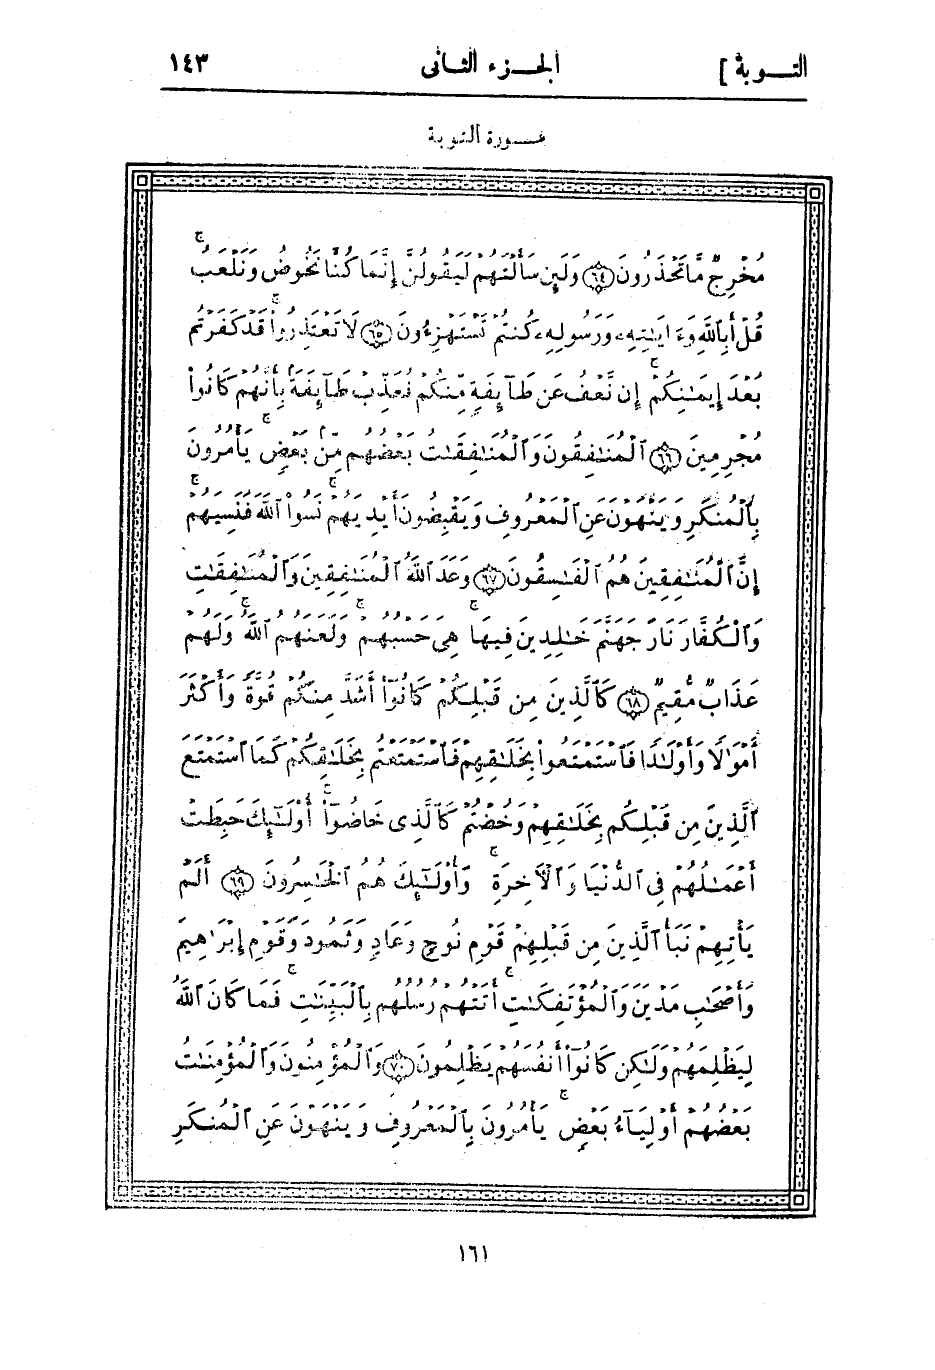 التـــوبة ]
الجـــزء الثـــانى
١٤٣
ســورة التوبة
مُخْرِجٌ مَّا تَحْذَرُونَ ﴿٦٤﴾ وَلَئِن سَأَلْتَهُمْ لَيَقُولُنَّ إِنَّمَا كُنَّا نَخُوضُ وَنَلْعَبُ ۚ
قُلْ أَبِٱللَّهِ وَءَايَـٰتِهِۦ وَرَسُولِهِۦ كُنتُمْ تَسْتَهْزِءُونَ ﴿٦٥﴾ لَا تَعْتَذِرُوا۟ ۚ قَدْ كَفَرْتُم
بَعْدَ إِيمَـٰنِكُمْ ۚ إِن نَّعْفُ عَن طَآئِفَةٍ مِّنكُمْ نُعَذِّبْ طَآئِفَةً بِأَنَّهُمْ كَانُوا۟
مُجْرِمِينَ ﴿٦٦﴾ ٱلْمُنَـٰفِقُونَ وَٱلْمُنَـٰفِقَـٰتُ بَعْضُهُم مِّنۢ بَعْضٍ ۚ يَأْمُرُونَ
بِٱلْمُنكَرِ وَيَنْهَوْنَ عَنِ ٱلْمَعْرُوفِ وَيَقْبِضُونَ أَيْدِيَهُمْ ۚ نَسُوا۟ ٱللَّهَ فَنَسِيَهُمْ ۚ
إِنَّ ٱلْمُنَـٰفِقِينَ هُمُ ٱلْفَـٰسِقُونَ ﴿٦٧﴾ وَعَدَ ٱللَّهُ ٱلْمُنَـٰفِقِينَ وَٱلْمُنَـٰفِقَـٰتِ
وَٱلْكُفَّارَ نَارَ جَهَنَّمَ خَـٰلِدِينَ فِيهَا ۚ هِىَ حَسْبُهُمْ ۚ وَلَعَنَهُمُ ٱللَّهُ ۚ وَلَهُمْ
عَذَابٌ مُّقِيمٌ ﴿٦٨﴾ كَٱلَّذِينَ مِن قَبْلِكُمْ كَانُوٓا۟ أَشَدَّ مِنكُمْ قُوَّةً وَأَكْثَرَ
أَمْوَٰلًا وَأَوْلَـٰدًا فَٱسْتَمْتَعُوا۟ بِخَلَـٰقِهِمْ فَٱسْتَمْتَعْتُم بِخَلَـٰقِكُمْ كَمَا ٱسْتَمْتَعَ
ٱلَّذِينَ مِن قَبْلِكُم بِخَلَـٰقِهِمْ وَخُضْتُمْ كَٱلَّذِى خَاضُوٓا۟ ۚ أُو۟لَـٰٓئِكَ حَبِطَتْ
أَعْمَـٰلُهُمْ فِى ٱلدُّنْيَا وَٱلْـَٔاخِرَةِ ۚ وَأُو۟لَـٰٓئِكَ هُمُ ٱلْخَـٰسِرُونَ ﴿٦٩﴾ أَلَمْ
يَأْتِهِمْ نَبَأُ ٱلَّذِينَ مِن قَبْلِهِمْ قَوْمِ نُوحٍ وَعَادٍ وَثَمُودَ وَقَوْمِ إِبْرَٰهِيمَ
وَأَصْحَـٰبِ مَدْيَنَ وَٱلْمُؤْتَفِكَـٰتِ ۚ أَتَتْهُمْ رُسُلُهُم بِٱلْبَيِّنَـٰتِ ۚ فَمَا كَانَ ٱللَّهُ
لِيَظْلِمَهُمْ وَلَـٰكِن كَانُوٓا۟ أَنفُسَهُمْ يَظْلِمُونَ ﴿٧٠﴾ وَٱلْمُؤْمِنُونَ وَٱلْمُؤْمِنَـٰتُ
بَعْضُهُمْ أَوْلِيَآءُ بَعْضٍ ۚ يَأْمُرُونَ بِٱلْمَعْرُوفِ وَيَنْهَوْنَ عَنِ ٱلْمُنكَرِ
١٦١